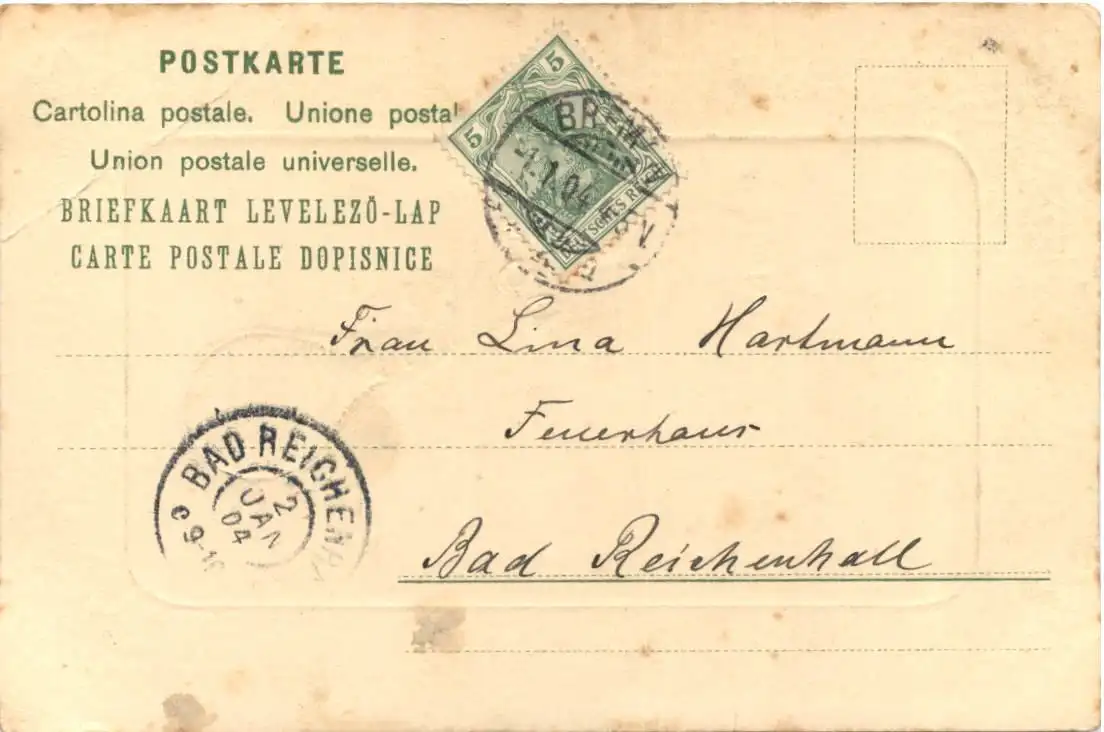 POSTKARTE
Cartolina postale. Unione postal
Union postale universelle.
BRIEFKAART LEVELEZÖ-LAP
CARTE POSTALE DOPISNICE
5
5
DEUTSCHES REICH
BREM
1.04
Frau Lina Hartmann
Feuerhaus
Bad Reichenhall
BAD REICHENHA
2
JAN
04
9-10